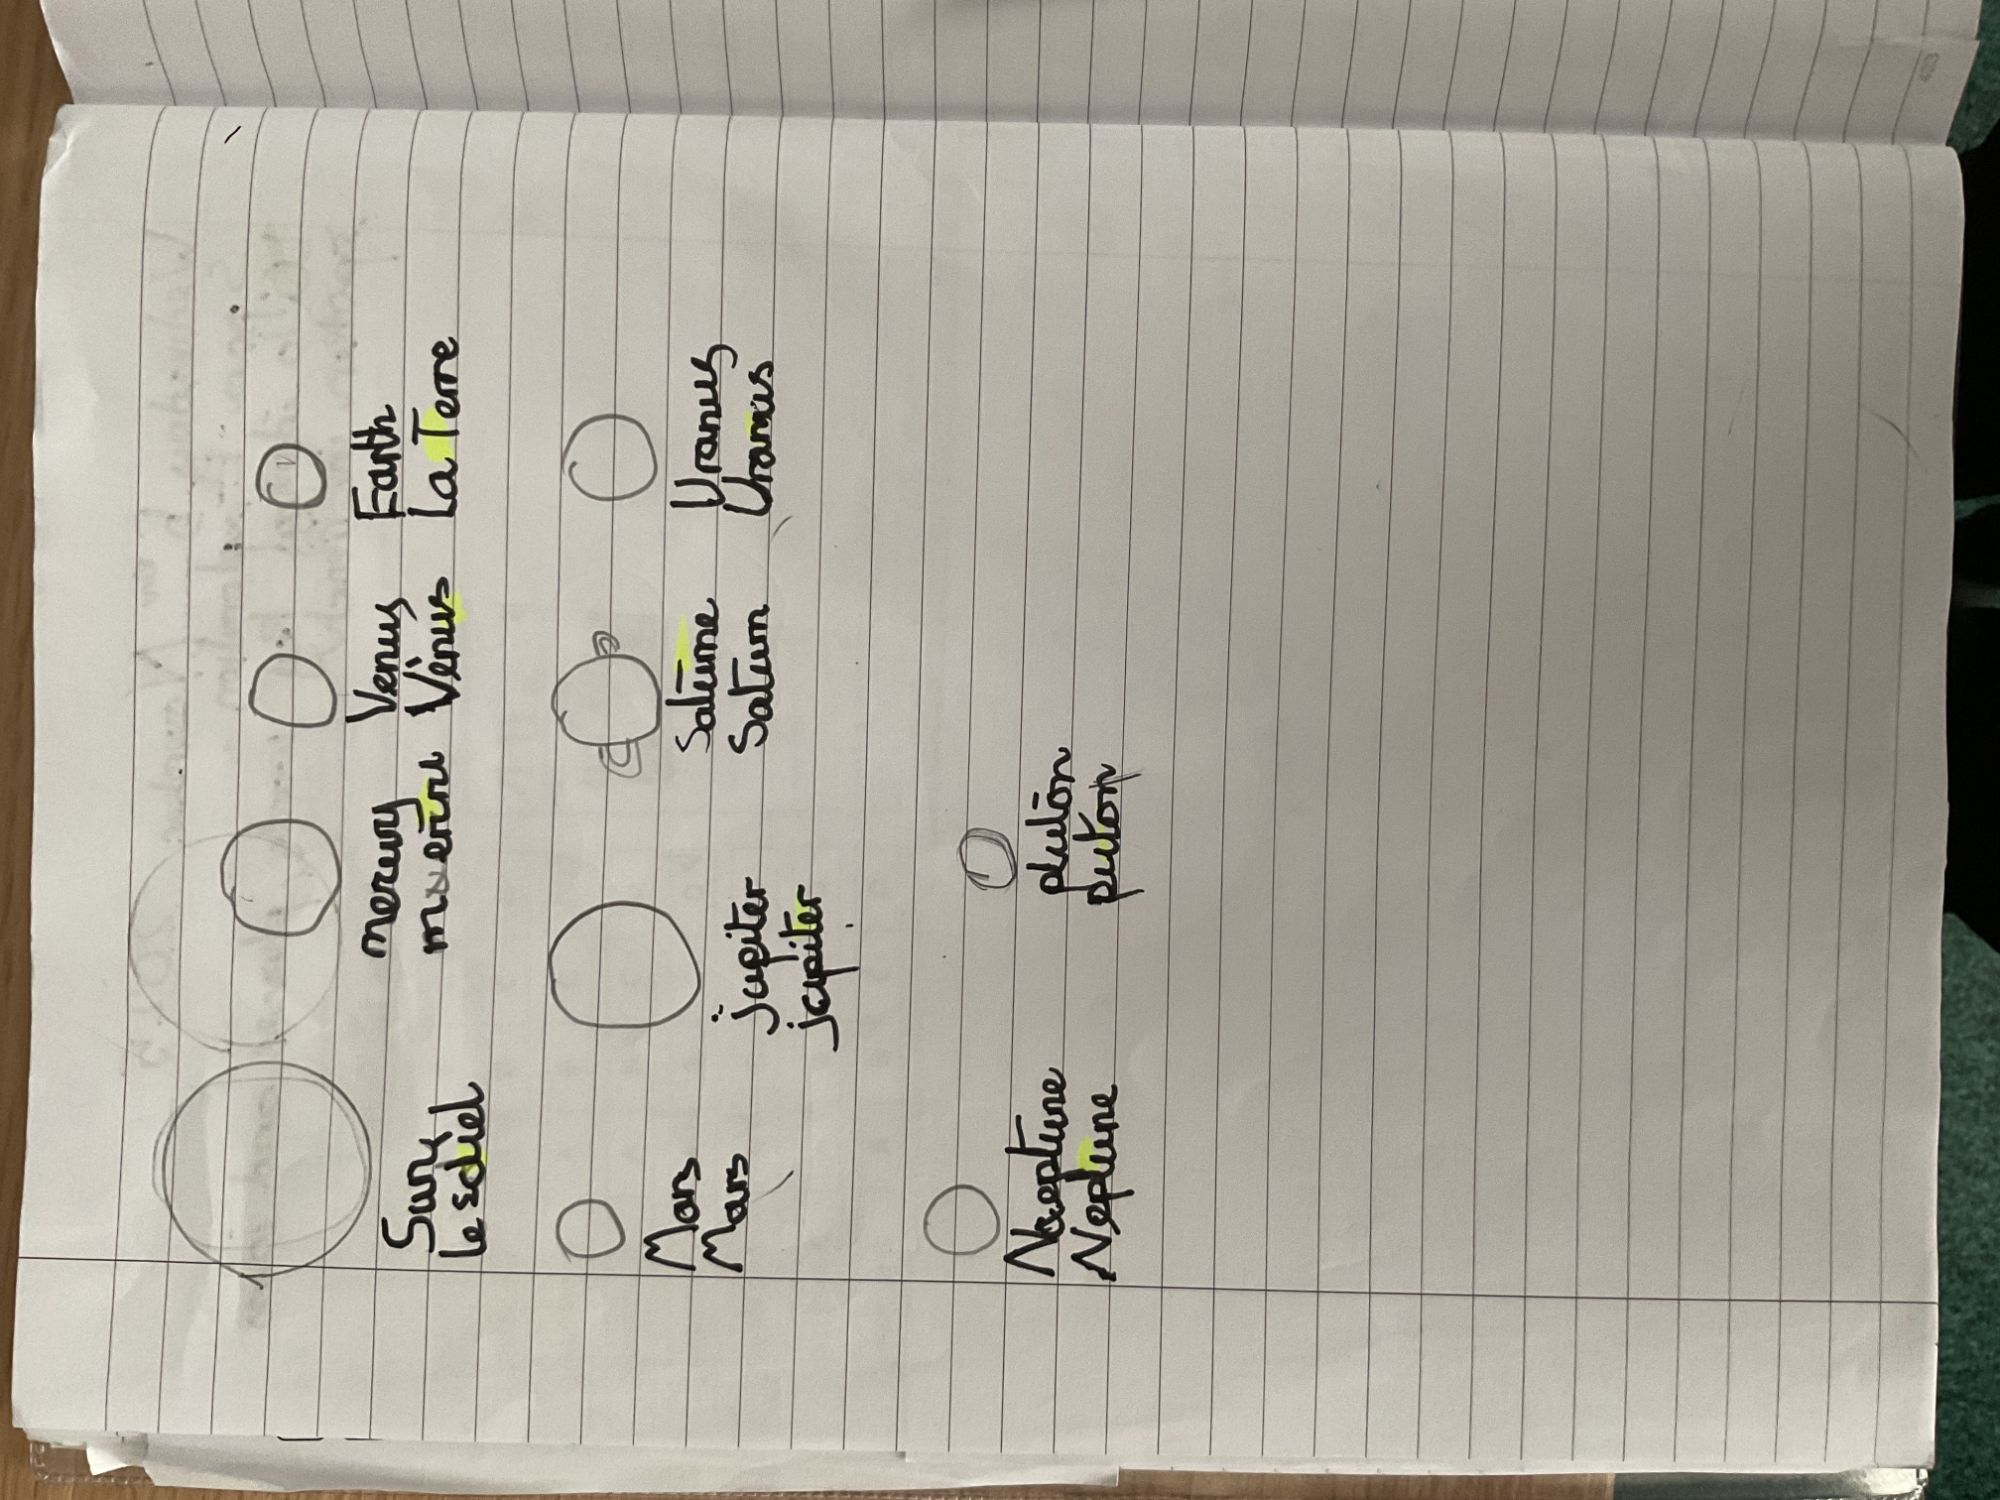 Sun mercury Venus Earth
le soleil Vènus La Terre
Mars jupiter Saturne Uranus
Mars jupiter Saturn Uranus
Neptune pluton
Neptune pluton